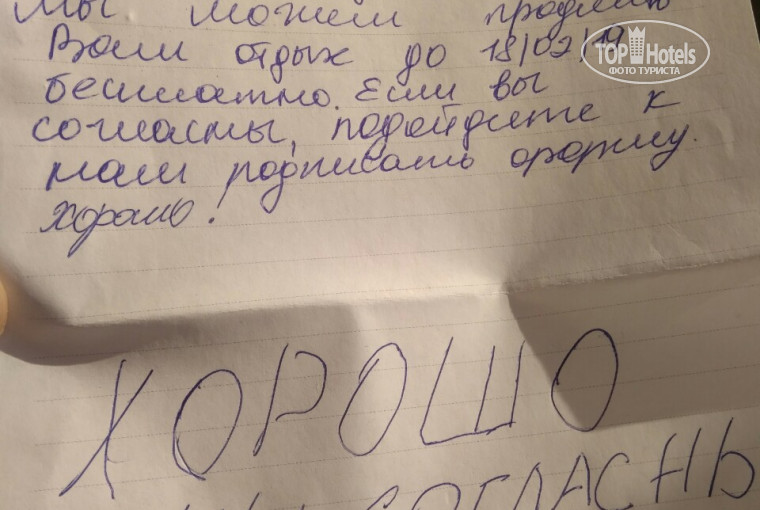 Мы можем продлить
Вам отдых до 18/02/19
бесплатно. Если вы
согласны, подойдите к
нам подписать форму.
Хорошо!
ХОРОШО
СОГЛАСНЫ
TOP Hotels
ФОТО ТУРИСТА